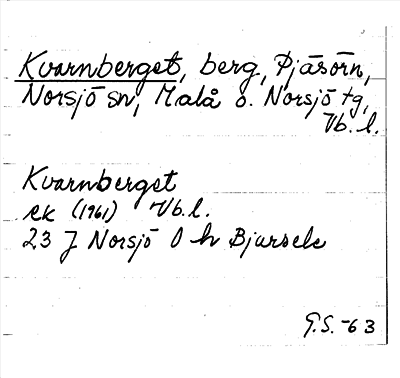 Kvarnberget, berg, Pjäsörn,
Norsjö sn, Malå o. Norsjö tg,
Vb. l.
Kvarnberget
ek (1961) Vb. l.
23 J Norsjö O h Bjursele
G.S. -63